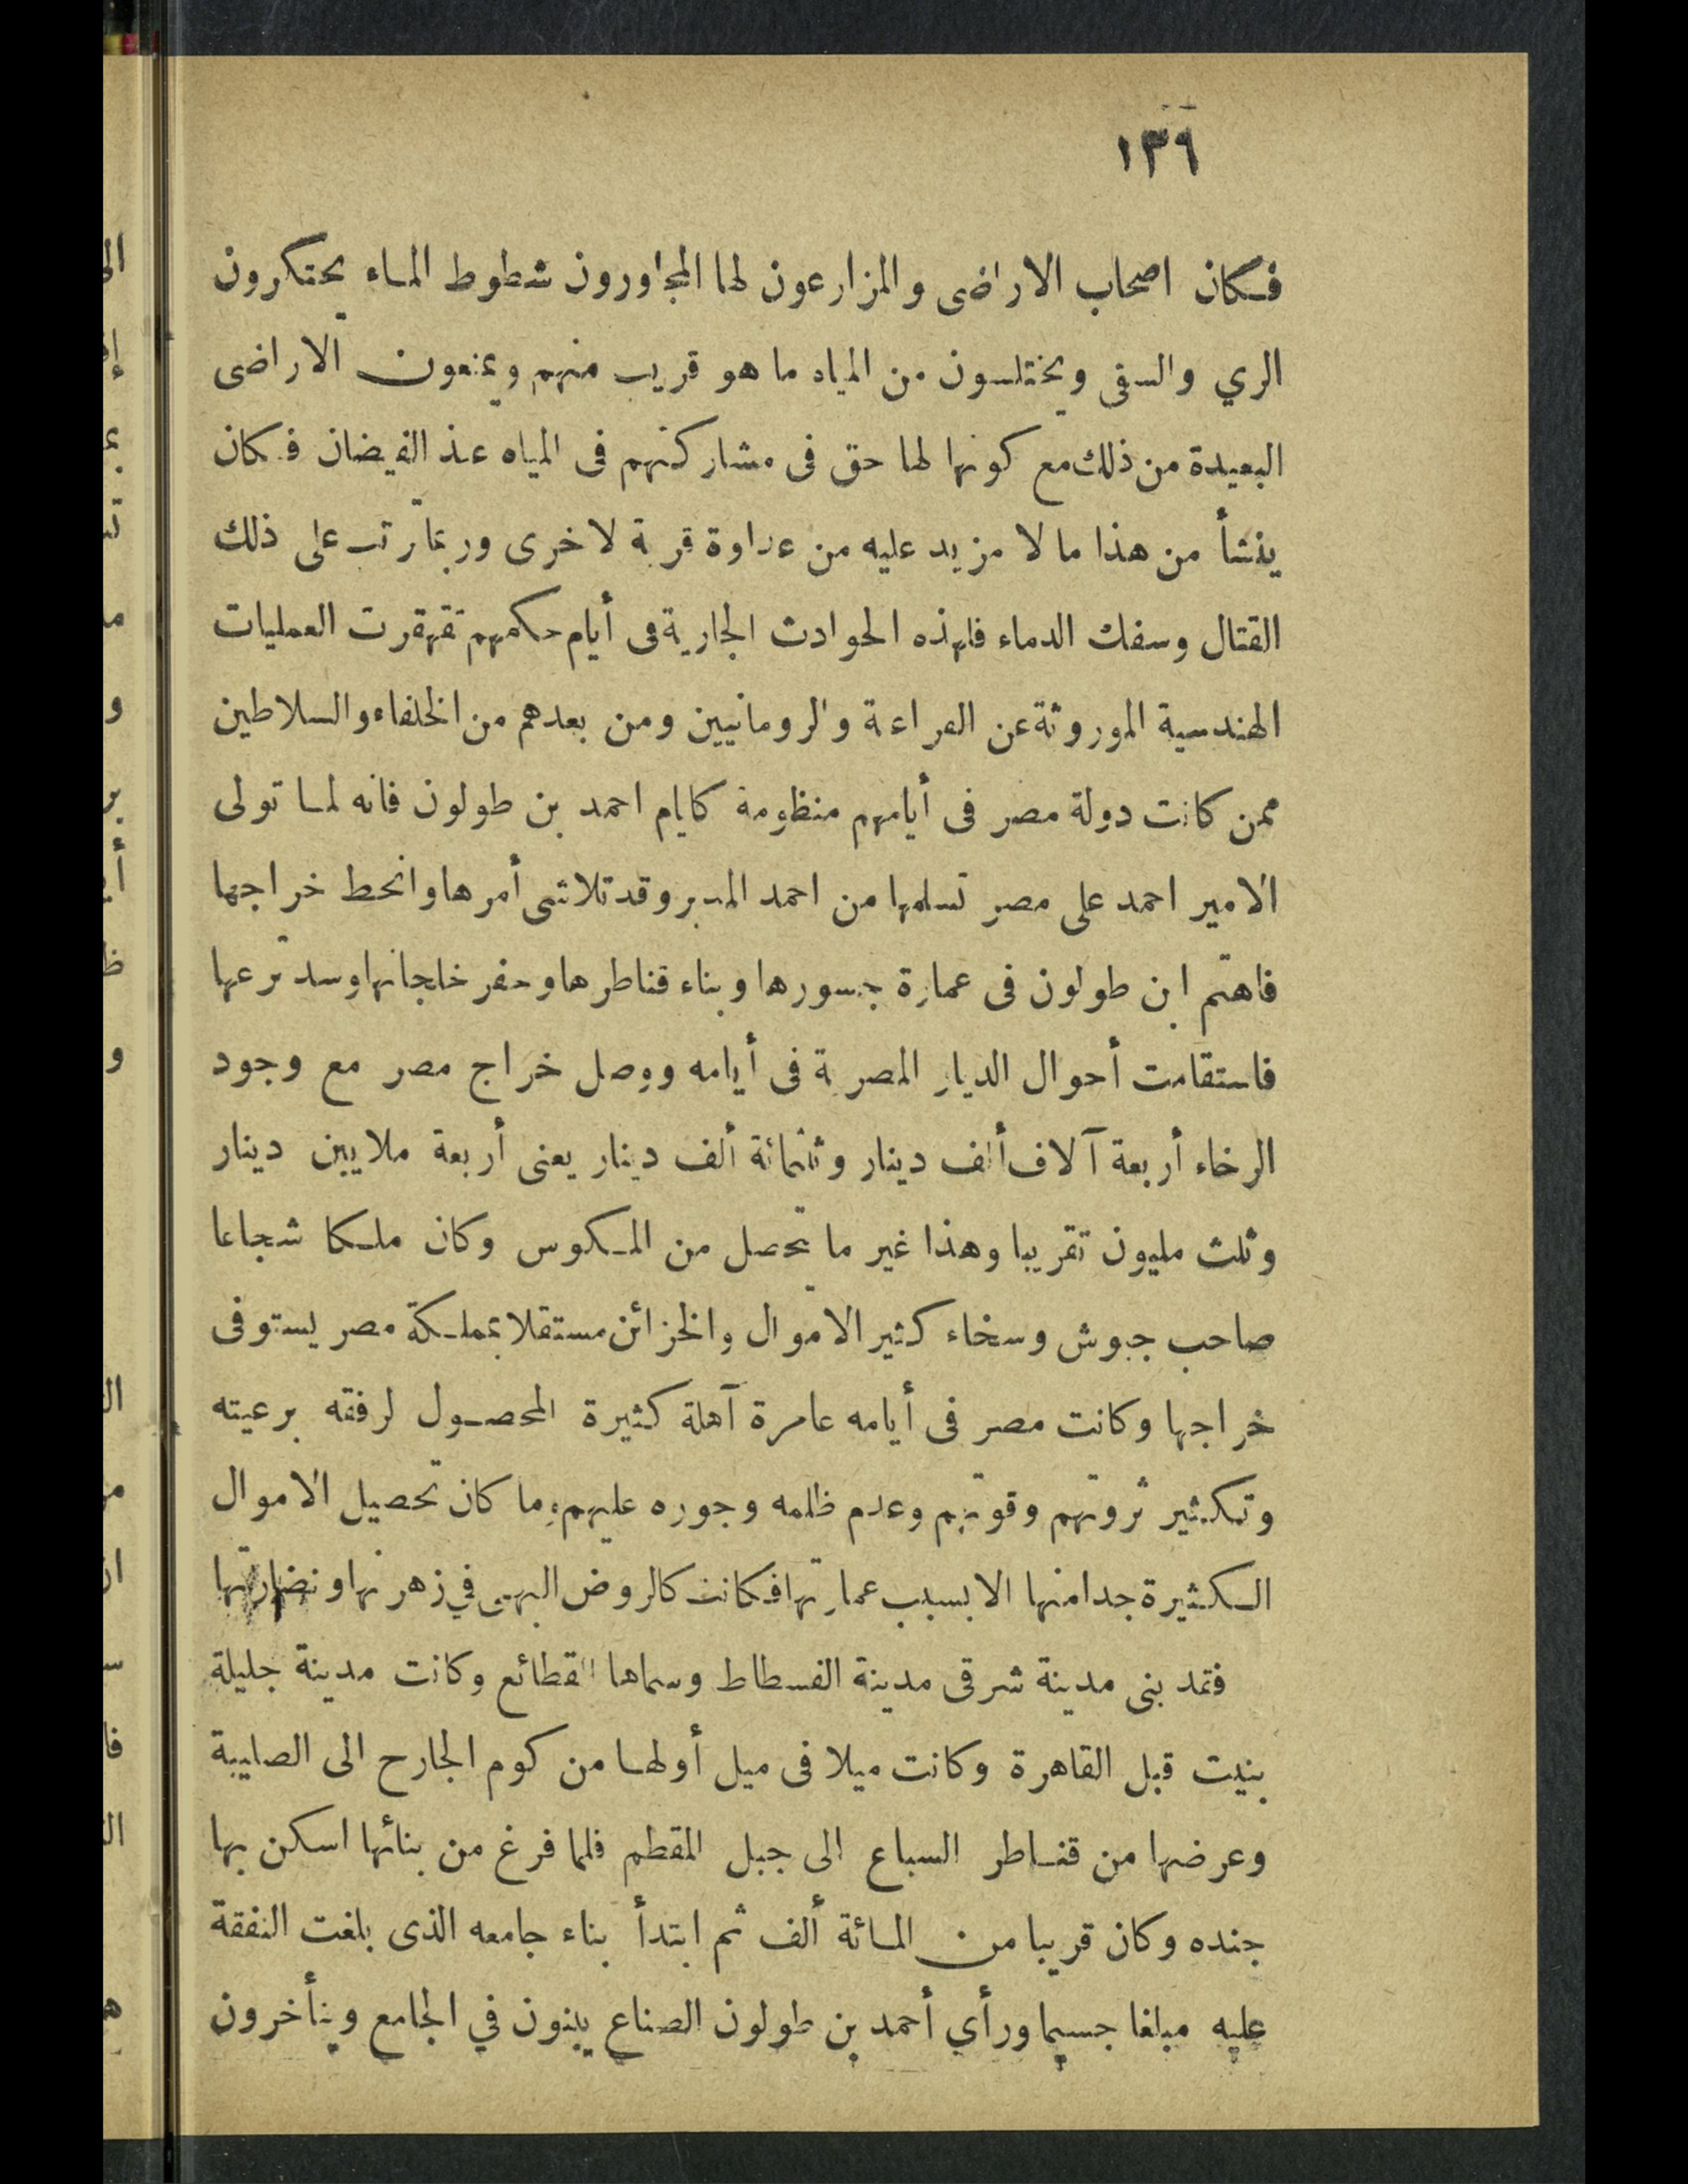 ١٣٦
فكان اصحاب الاراضى والمزارعون لها المجاورون شطوط الماء يحتكرون
الري والسقى ويختلسون من المياه ما هو قريب منهم ويمنعون الاراضى
البعيدة من ذلك مع كونها لها حق فى مشاركتهم فى المياه عند الفيضان فكان
ينشأ من هذا ما لا مزيد عليه من عداوة قرية لاخرى وربما ترتب على ذلك
القتال وسفك الدماء فلهذه الحوادث الجارية فى أيام حكمهم تقهقرت العمليات
الهندسية الموروثة عن الفراعنة والرومانيين ومن بعدهم من الخلفاء والسلاطين
ممن كانت دولة مصر فى أيامهم منظومة كايام احمد بن طولون فانه لما تولى
الامير احمد على مصر تسلمها من احمد المدبر وقد تلاشى أمرها وانحط خراجها
فاهتم ابن طولون فى عمارة جسورها وبناء قناطرها وحفر خلجانها وسد ترعها
فاستقامت أحوال الديار المصرية فى أيامه ووصل خراج مصر مع وجود
الرخاء أربعة آلاف ألف دينار وثلثمائة ألف دينار يعنى أربعة ملايين دينار
وثلث مليون تقريبا وهذا غير ما تحصل من المكوس وكان ملكا شجاعا
صاحب جيوش وسخاء كثير الاموال والخزائن مستقلا بمملكة مصر يستوفى
خراجها وكانت مصر فى أيامه عامرة آهلة كثيرة المحصول لرفقه برعيته
وتكثير ثروتهم وقوتهم وعدم ظلمه وجوره عليهم وما كان تحصيل الاموال
الكثيرة جدا منها الا بسبب عمارتها فكانت كالروض البهى في زهرتها ونضارتها
فقد بنى مدينة شرقى مدينة الفسطاط وسماها القطائع وكانت مدينة جليلة
بنيت قبل القاهرة وكانت ميلا فى ميل أولها من كوم الجارح الى الصليبة
وعرضها من قناطر السباع الى جبل المقطم فلما فرغ من بنائها اسكن بها
جنده وكان قريبا من المائة ألف ثم ابتدأ بناء جامعه الذى بلغت النفقة
عليه مبلغا جسيما ورأي أحمد بن طولون الصناع يبنون في الجامع ويتأخرون